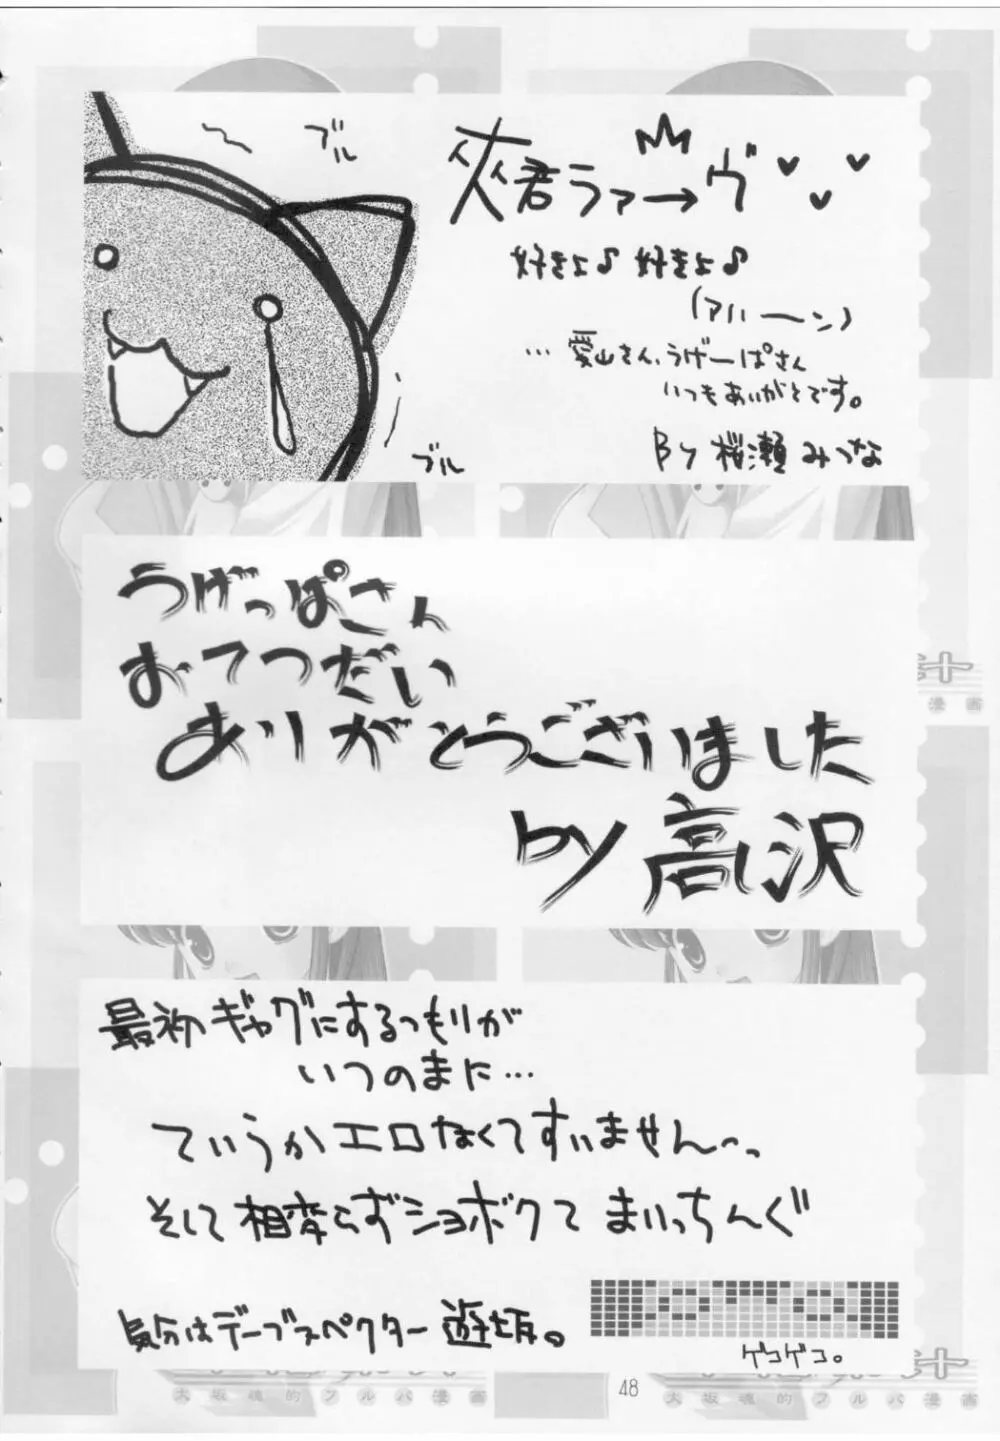 ブル
夾君ラァーヴ
好きよ♪好きよ♪
(アハーン)
…愛山さん、うげーぱさん
いつもありがとです。
By 桜瀬みつな
ブル
うげっぱさん
おてつだい
ありがとうございました
by 高沢
最初ギャグにするつもりが
いつのまに…
ていうかエロなくてすいません〜っ
そして相変らずショボクてまいっちんぐ
気分はデーブスペクター 遊坂。
ゲコゲコ。
汁
漫画
汁
大坂魂的フルバ漫画
48
大坂魂的フルバ漫画